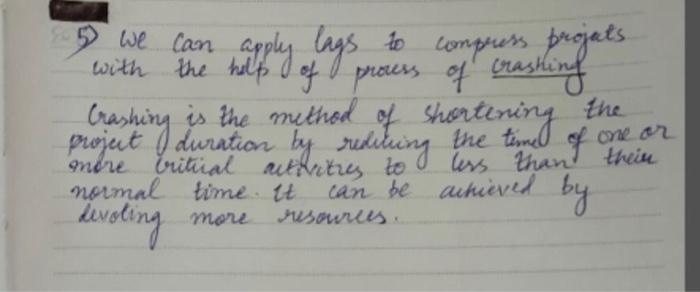 5) We can apply lags to compress projects
with the help of process of crashing
Crashing is the method of shortening the
project duration by reducing the time of one or
more critical activities to less than their
normal time. It can be achieved by
devoting more resources.